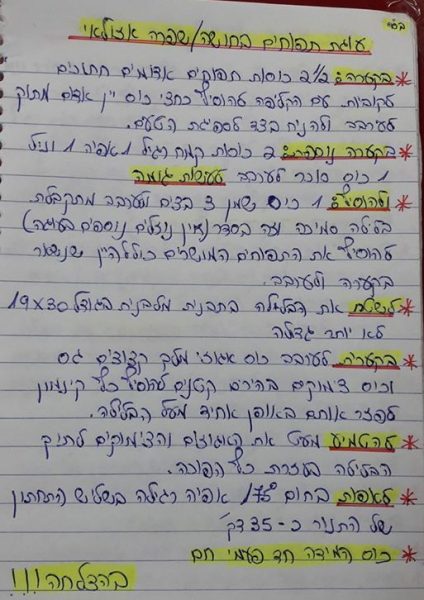 בס״ד
עוגת תפוחים בחושה/שפרה אזולאי
* בקערה: 2½ כוסות תפוחים אדומים חתוכים
לקוביות עם הקליפה להוסיף כחצי כוס יין אדום מתוק
לערבב ולהניח בצד לספיגת הטעם.
* בקערה נוספת: 2 כוסות קמח רגיל 1 אפיה 1 וניל
1 כוס סוכר לערבב לעשות גומה
* ולהוסיף: 1 כוס שמן 3 בצים ולערבב מתקבלת
בלילה סמיכה וזה בסדר (אין נוזלים נוספים בעוגה)
להוסיף את התפוחים המושרים כולל היין שנשאר
בקערה ולערבב.
* לשטח את הבלילה בתבנית מלבנית בגודל 19X30
לא יותר גדולה
* בקערה לערבב כוס אגוזי מלך קצוצים גס
וכוס צימוקים בהירם קטנים להוסיף כף קינמון
לפזר אותם באופן אחיד מעל הבלילה.
* להטמיע מעט את האגוזים והצימוקים לתוך
הבלילה בעזרת כף הפוכה.
* לאפות בחום 175° אופיה רגילה בשליש התחתון
של התנור כ-35 דק׳
* כוס המידה חד פעמי חם
בהצלחה!!!